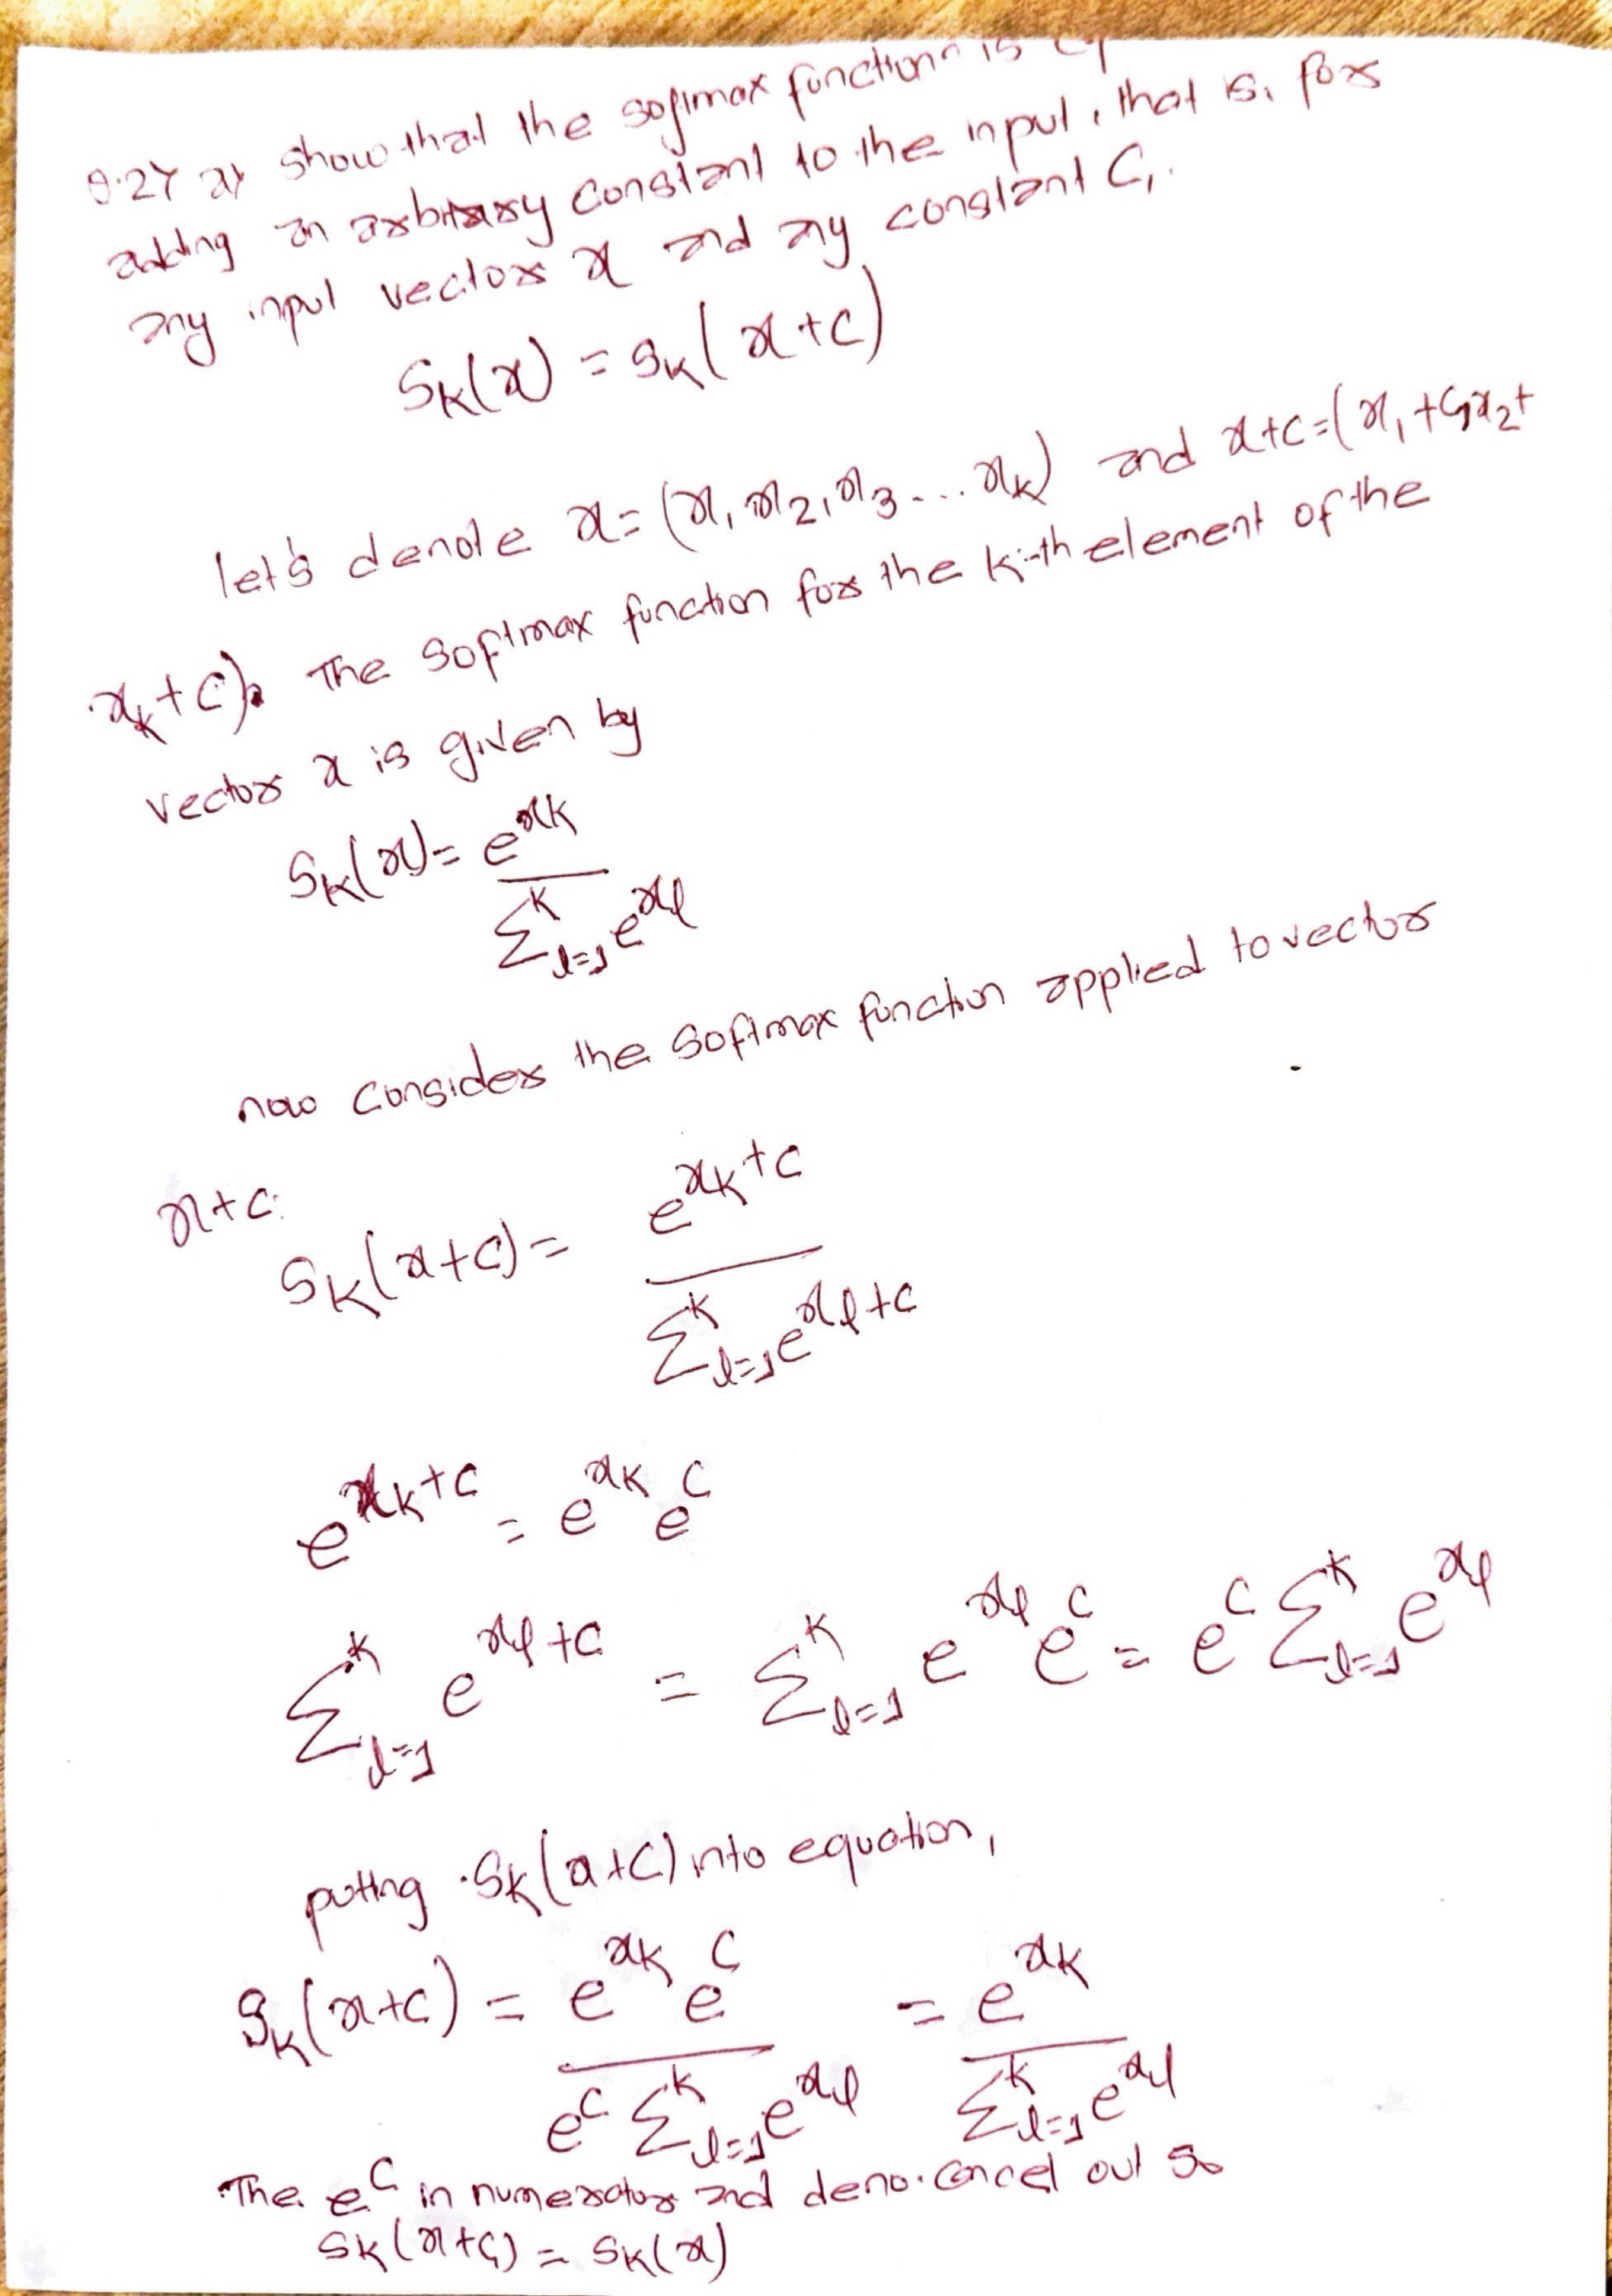 Show that the softmax function is
adding an arbitrary constant to the input, that is, for
any input vector x and any constant C,
Sk(x) = Sk(x+c)
let's denote x=(x1, x2, x3 ... xk) and x+c=(x1+c, x2+
xk+c). The softmax function for the k-th element of the
vector x is given by
Sk(x) = e^xk / Σ^K l=1 e^xl
now consider the softmax function applied to vector
x+c:
Sk(x+c) = e^xk+c / Σ^K l=1 e^xl+c
e^xk+c = e^xk e^c
Σ^K l=1 e^xl+c = Σ^K l=1 e^xl e^c = e^c Σ^K l=1 e^xl
putting Sk(x+c) into equation,
Sk(x+c) = e^xk e^c / e^c Σ^K l=1 e^xl = e^xk / Σ^K l=1 e^xl
The e^c in numerator and deno. cancel out so
Sk(x+c) = Sk(x)